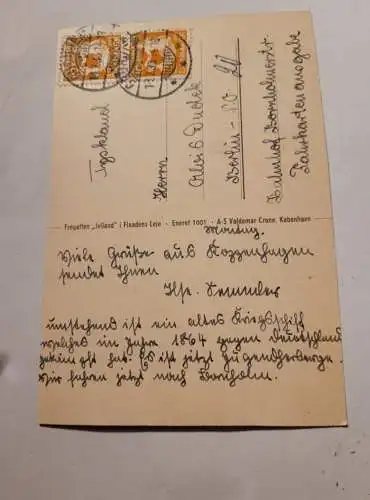 Tyskland
Herrn
Alois Dudek
Berlin - SO
Bahnhof Bornholmerstr.
Fahrkartenausgabe
Fregatten „Jylland" i Flaadens Leje - Eneret 1001 - A-S Valdemar Crone, København
Montag.
Viele Grüße aus Koppenhagen
sendet Ihnen
Ilse
umstehens ist ein altes Kriegsschiff
welches im Jahre 1864 gegen Deutschland
gekämpft hat. Es ist jetzt Jugendherberge.
Wir fahren jetzt nach Bornholm.